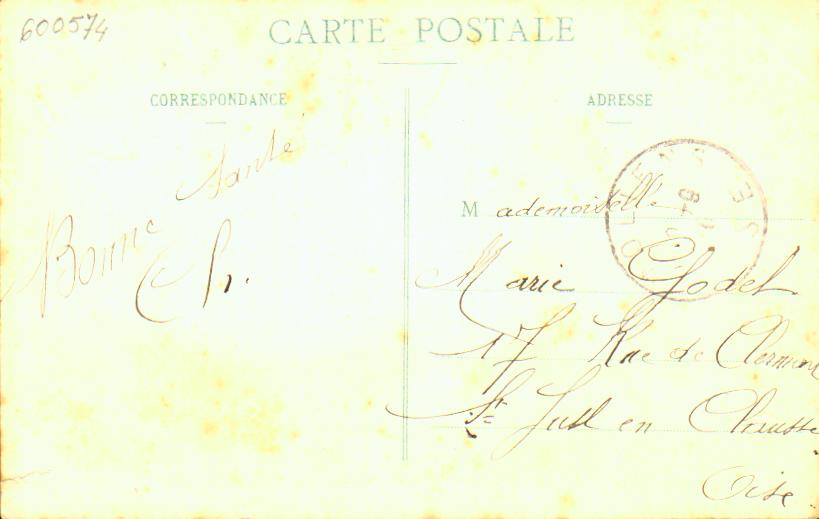 600574
CARTE POSTALE
CORRESPONDANCE
ADRESSE
Bonne Santé
Ch.
Mademoiselle
Marie Godet
17 Rue de Clermon
St Just en Chausse
Oise